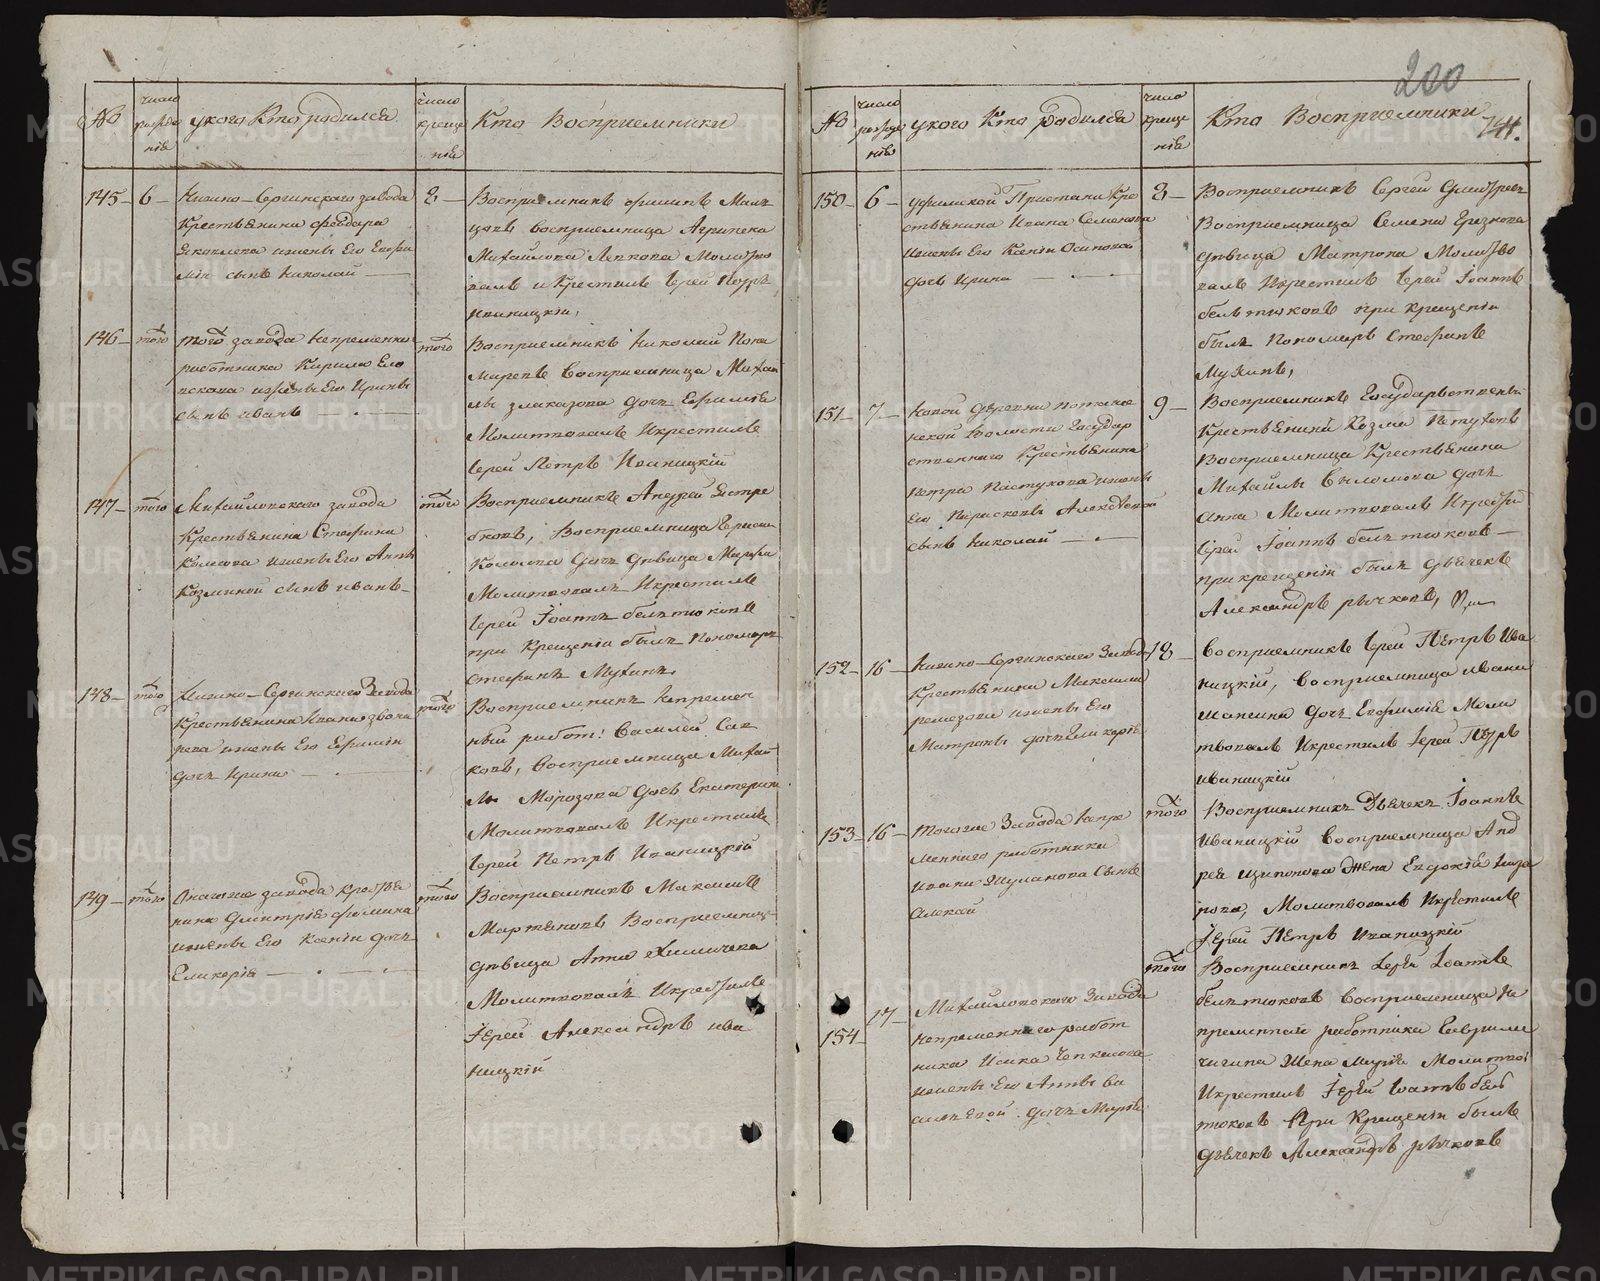 200
141.
№
число рожде нія
укого Кто родился
число креще нія
Кто Восприемники
145 6
Нижно-Сергинскаго завода
Крестьянина Феодора
жены Его Евфи
міи сынъ Николай
8
Восприемникъ Филипъ Маль
цовъ восприемница Агрипена
Михайлова Молитво
валъ и Крестилъ Іерей Петръ
Иваницкій,
146 того
того завода Непременна
работника Кирила
жены Его Ирины
сынъ иванъ
того
Восприемникъ Николай Поно
маревъ восприемница Михаи
лы злаказова дочь Евфимія
Молитвовалъ Икрестилъ
Іерей Петръ Иваницкій
147 того
Михайловскаго завода
Крестьянина Стефана
жены Его Анны
Козминой сынъ иванъ
того
Восприемникъ Андрей Ястре
бковъ, Восприемница
дочь девица Марфа
Молитвовалъ Икрестилъ
Іерей Іоаннъ белтюковъ
при Крещеніи былъ Пономарь
стефанъ Мухинъ
148 того
Нижно-Сергинскаго Завода
Крестьянина Ивана звона
рева жены Его Евфиміи
дочь Ирина
того
Восприемникъ Непремен
ный работ: Василей Сав
ковъ, восприемница Михай
лы Морозова дочь Екатерина
Молитвовалъ Икрестилъ
Іерей Петръ Иваницкій
149 того
Онагоже завода крестья
нина Дмитрія фомина
жены Его Ксеніи дочь
Гликерія
того
Восприемникъ Максимъ
Мартьяновъ Восприемница
девица Анна
Молитвовалъ Икрестилъ
Іерей Александръ ива
ницкій
№
число рожде нія
укого Кто родился
число креще нія
Кто Восприемники
150 6
уфимской Пристани Кре
стьянина Ивана Семенова
жены Его Ксеніи Осиповой
дочь Ирина
8
Восприемникъ Сергей Дмитріевъ
Восприемница Семена
девица Матрона Молитво
валъ Икрестилъ Іерей Іоаннъ
белтюковъ при крещеніи
былъ Пономарь Стефанъ
Мухинъ,
151 7
Новой деревни
волости Государ
ственнаго Крестьянина
петра Пастухова жены
Его Парасковы
сынъ Николай
9
Восприемникъ Государственный
Крестьянинъ Козма Петуховъ
Восприемница Крестьянина
Михайлы дочь
Анна Молитвовалъ
Іерей Іоаннъ белтюковъ
при крещеніи былъ дьячекъ
Александръ рычковъ,
152 16
Нижно-Сергинскаго Завода
Крестьянина Максима
ремезова жены Его
Матроны дочь Гликерія
18
восприемникъ Іерей Петръ Ива
ницкій, восприемница ивана
дочь Евфимія Моли
твовалъ Икрестилъ Іерей Петръ
иваницкій
153 16
Тогоже Завода Непре
меннаго работника
ивана Шулакова сынъ
алексей
того
Восприемникъ Дьячекъ Іоаннъ
Иваницкій восприемница Анд
рея жена Евдокія
Молитвовалъ Икрестилъ
Іерей Петръ Иваницкій
154 17
Михайловскаго Завода
непременнаго работ
ника жены Его Анны ва
сильевой дочь Марія
того
Восприемникъ Іерей Іоаннъ
белтюковъ восприемница Не
пременнаго работника Гаврилы
чигина жена Марія Молитвов
Икрестилъ Іерей Іоаннъ бел
тюковъ При Крещеніи былъ
дьячекъ Александръ рычковъ
METRIKI.GASO-URAL.RU